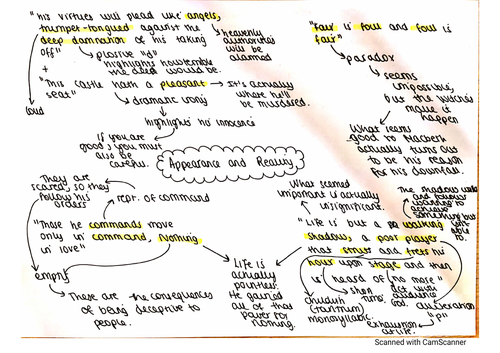 "his virtues will plead like angels,
trumpet-tongued against the
deep damnation of his taking
off"
heavenly
authorities
will be
alarmed
plosive "d"
highlights how terrible
the deed would be.
+
loud
"This castle hath a pleasant
seat"
It's actually
where he'll
be murdered.
dramatic irony
highlights his innocence
If you are
good, you must
also be
careful.
"Fair is foul and foul is
fair"
paradox
seems
impossible,
but the witches
make it
happen
What seems
good to Macbeth
actually turns out
to be his reason
for his downfall.
Appearance and Reality
They are
scared, so they
follow his
orders
rept. of command
"Those he commands move
only in command, nothing
in love"
empty
These are the consequences
of being deceptive to
people.
Life is
actually
pointless.
He gained
all of that
power for
nothing.
What seemed
important is actually
insignificant.
The shadow
to
achieve
something but
"Life is but a walking
shadow, a poor player
that struts and frets his
hour upon stage and then
is heard of no more"
childish
(tantrum)
monosyllabic.
short
time.
act with
audience
God.
alliteration
"p"
exhaustion
at life.
Scanned with CamScanner